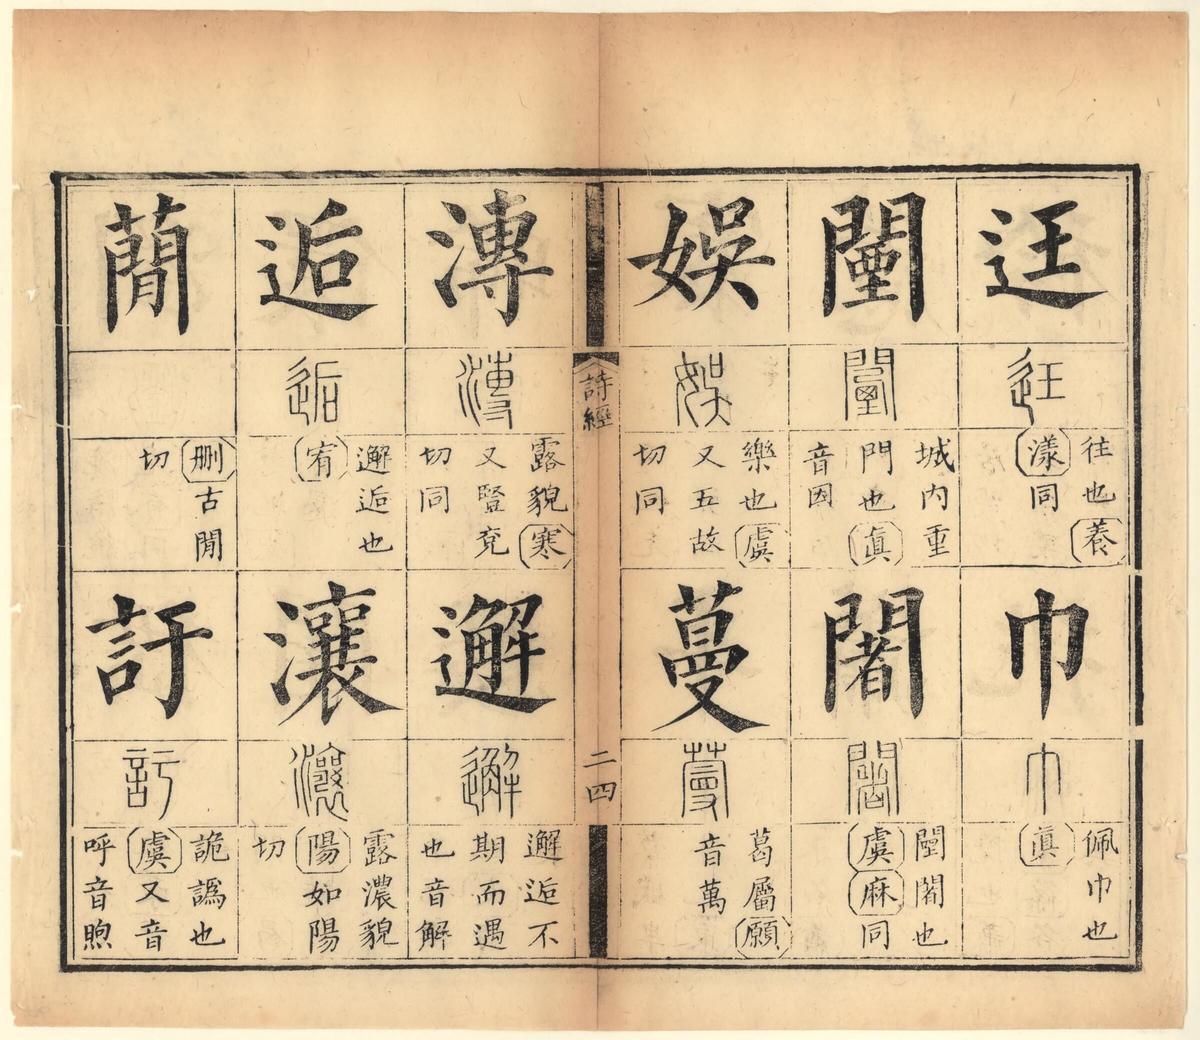 迋
迋
往也養
漾同
巾
巾
佩巾也
眞
闉
闉
城内重
門也眞
音因
闍
闍
闉闍也
虞麻同
娛
娛
樂也虞
又五故
切同
蔓
蔓
葛屬願
音萬
詩經
二四
漙
漙
露貌寒
又豎兗
切同
邂
邂
邂逅不
期而遇
也音解
逅
逅
邂逅也
宥
瀼
瀼
露濃貌
陽如陽
切
蕑
删古閒
切
訏
訏
詭譌也
虞又音
呼音煦